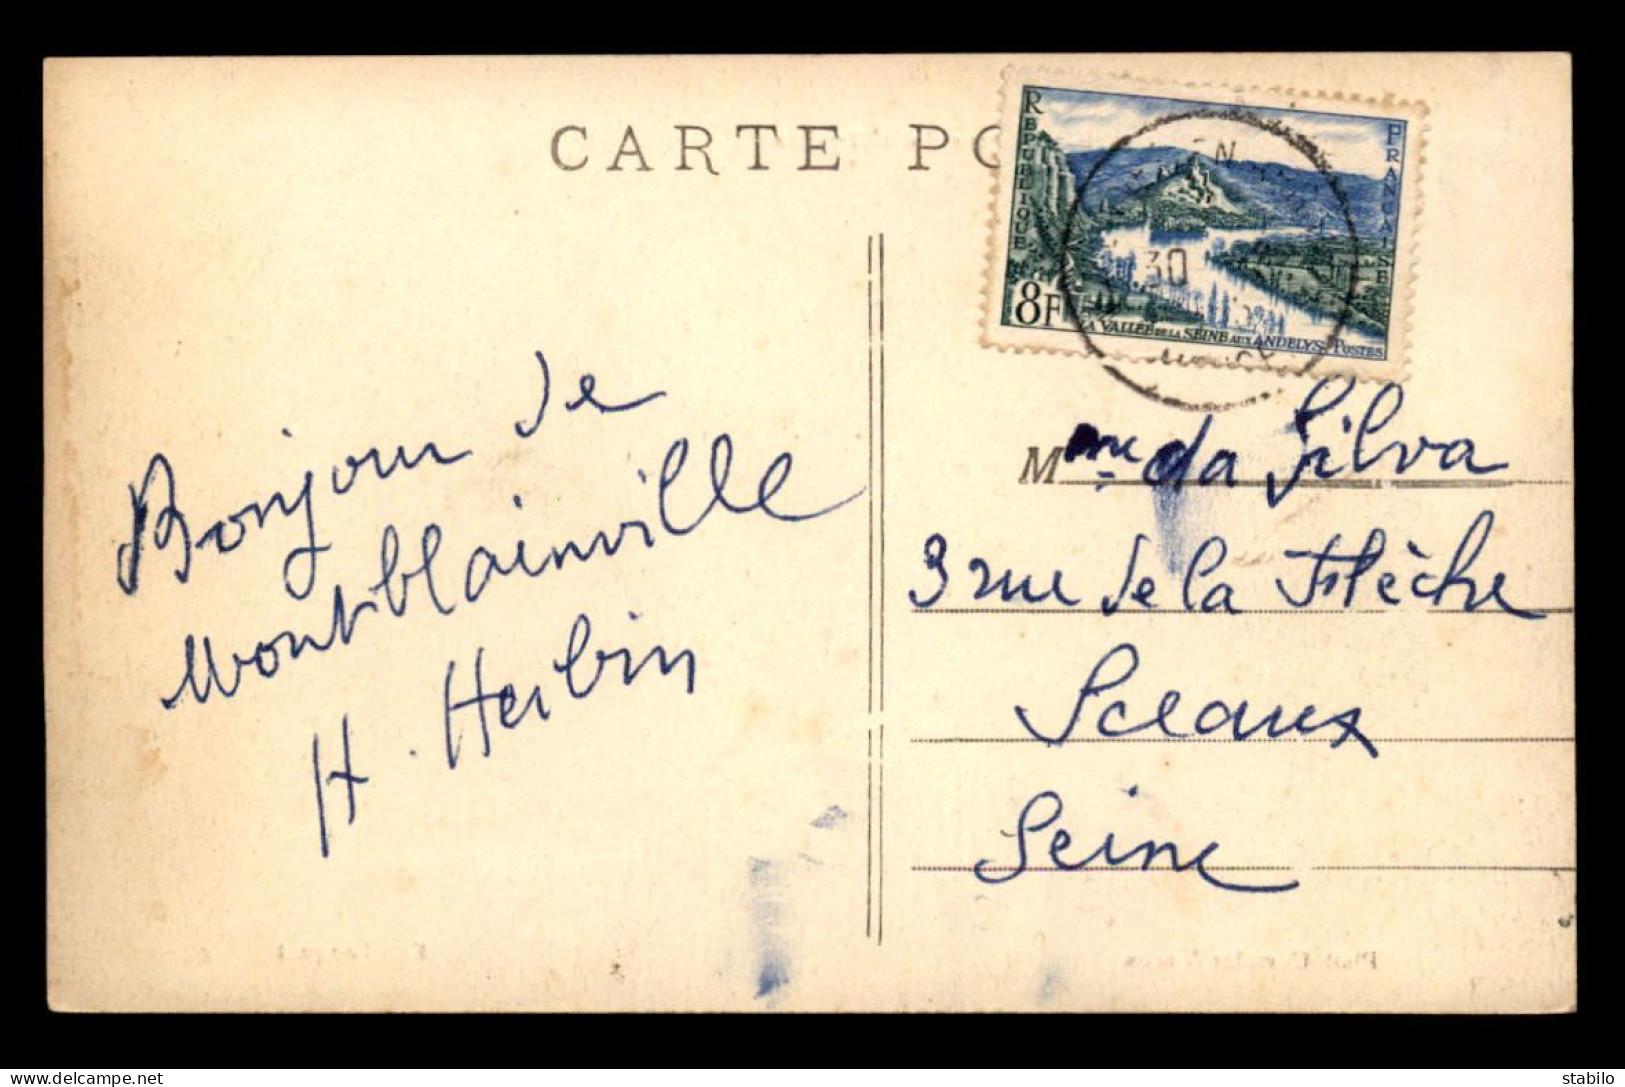 CARTE PO
RÉPUBLIQUE
FRANÇAISE
8F
LA VALLÉE DE LA SEINE AUX ANDELYS
POSTES
30
Bonjour de
Montblainville
H. Herbin
Mme da Silva
3 rue de la Flèche
Sceaux
Seine
stabilo